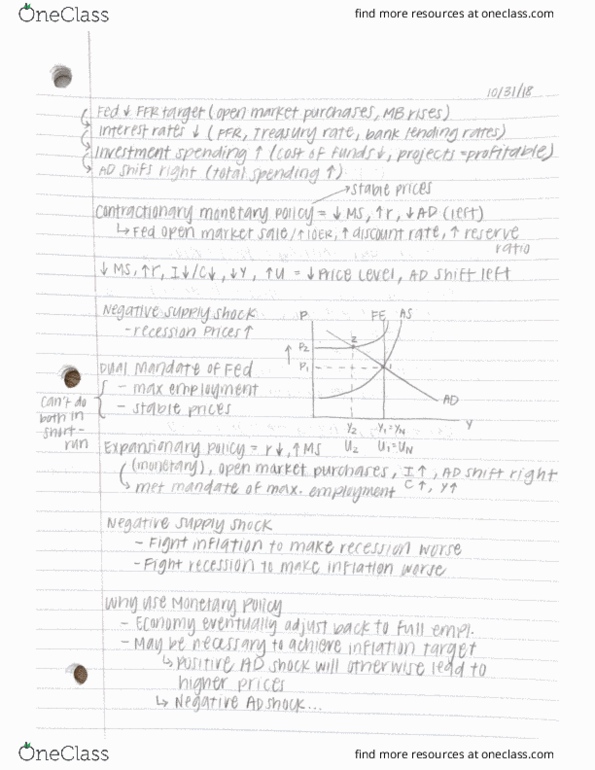 OneClass
find more resources at oneclass.com
10/31/18
Fed ↓ FFR target (open market purchases, MB rises)
Interest rates ↓ (FFR, Treasury rate, bank lending rates)
Investment spending ↑ (cost of funds↓, projects =profitable)
AD shifs right (total spending ↑)
→stable prices
Contractionary monetary policy = ↓ MS, ↑r, ↓AD (left)
↳ Fed open market sale/↑IOER, ↑ discount rate, ↑ reserve
ratio
↓ MS, ↑r, I↓/C↓, ↓Y, ↑U = ↓Price level, AD shift left
Negative supply shock
- recession prices↑
P FE AS
2
P2
P1
AD
Y
Y2 Y1=YN
U2 U1=UN
Dual Mandate of Fed
- max employment
- stable prices
can't do
both in
short-
run
Expansionary policy = r↓, ↑MS
(monetary), open market purchases, I↑, AD shift right
C↑, Y↑
↳ met mandate of max. employment
Negative supply shock
- Fight inflation to make recession worse
- Fight recession to make inflation worse
Why use Monetary Policy
- Economy eventually adjust back to full empl.
- May be necessary to achieve inflation target
↳ Positive AD shock will otherwise lead to
higher prices
↳ Negative AD shock...
OneClass
find more resources at oneclass.com